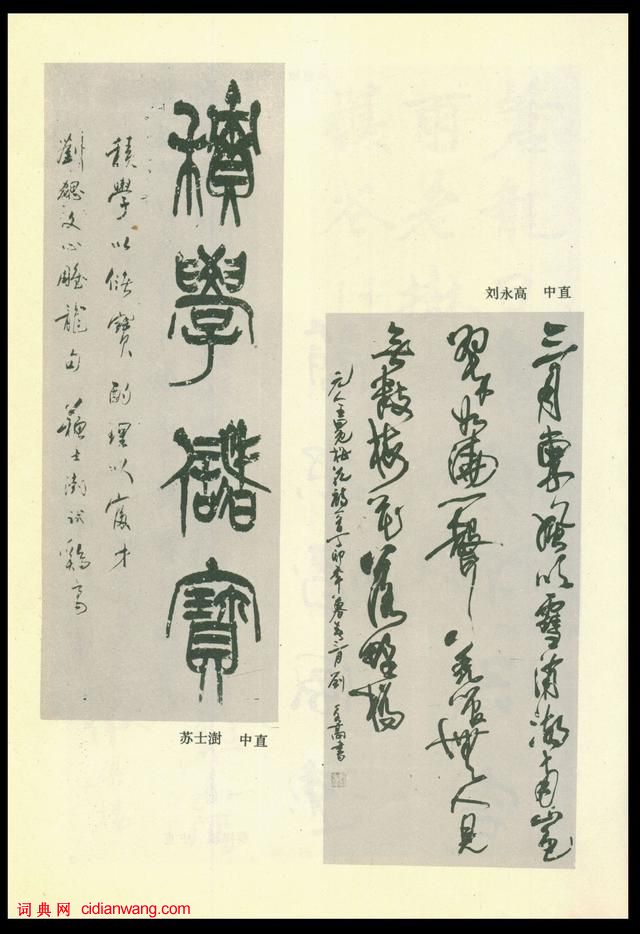 積學儲寶
積學以儲寶酌理以富才
劉勰文心雕龍句蘇士澍試鷄毫
苏士澍 中直
刘永高 中直
三月東風吹雪消湖南山色
翠如澆一聲羌管無人見
無數梅花落野橋
元人王冕梅花詩一首丁卯年暮春三月劉永高書
词典网 cidianwang.com